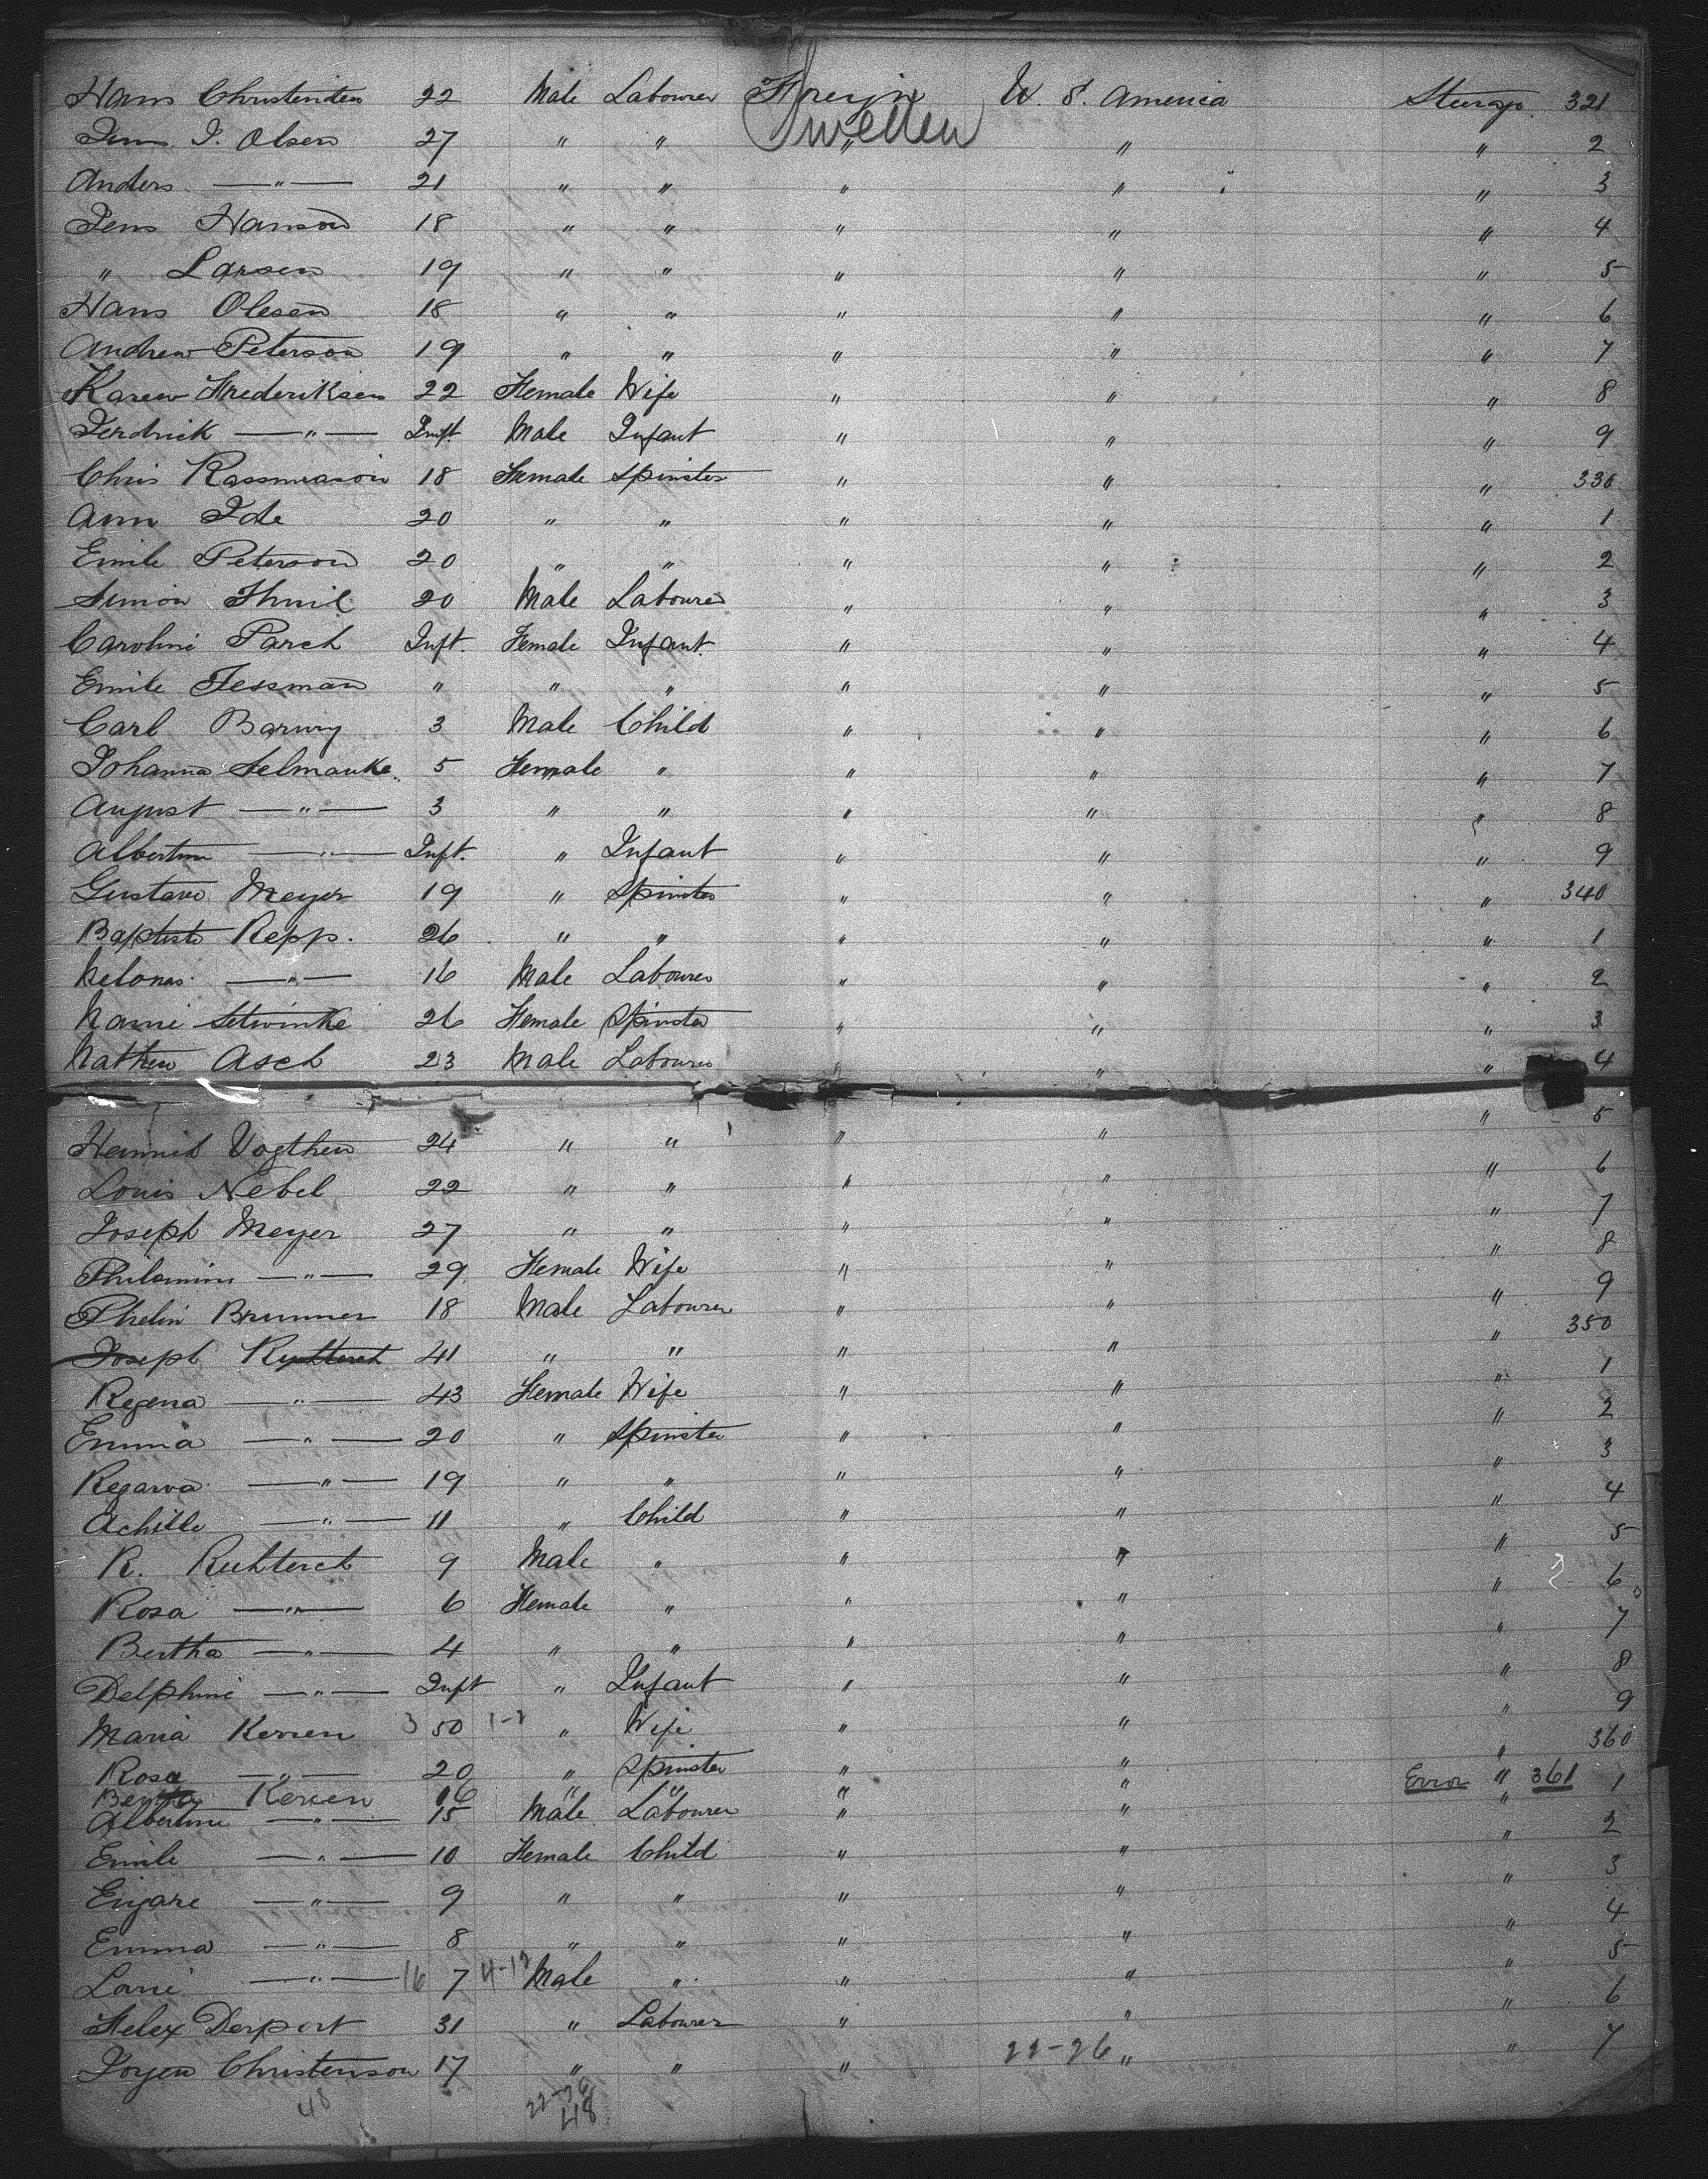 Hans Christensen 22 Male Labourer Foreign U. S. America Steerage 321
Swellen
Jens J. Olsen 27 " " " " " 2
Anders —"— 21 " " " " " 3
Jens Hanson 18 " " " " " 4
" Larsen 19 " " " " " 5
Hans Olesen 18 " " " " " 6
Andrew Peterson 19 " " " " " 7
Karen Frederiksen 22 Female Wife " " " 8
Ferdrick —"— Inft Male Infant " " " 9
Chris Rassmeason 18 Female Spinster " " " 330
Ann Ide 20 " " " " " 1
Emile Peterson 20 " " " " " 2
Simon Thuil 20 Male Labourer " " " 3
Caroline Parch Inft. Female Infant. " " " 4
Emile Tessman " " " " " " 5
Carl Barwy 3 Male Child " " " 6
Johanna Selmanke 5 Female " " " " 7
August —"— 3 " " " " " 8
Albertine —"— Inft. " Infant " " " 9
Gustave Meyer 19 " Spinster " " " 340
Baptiste Repp. 26 " " " " " 1
Melonas —"— 16 Male Labourer " " " 2
Namie Setwinke 26 Female Spinster " " " 3
Nathen Asch 23 Male Labourer " " " 4
Heinrich Vogthen 24 " " " " " 5
Louis Nebel 22 " " " " " 6
Joseph Meyer 27 " " " " " 7
Philomine —"— 29 Female Wife " " " 8
Phelin Brunner 18 Male Labourer " " " 9
Joseph Ruhterch 41 " " " " " 350
Regena —"— 43 Female Wife " " " 1
Emma —"— 20 " Spinster " " " 2
Regarva —"— 19 " " " " " 3
Achille —"— 11 " Child " " " 4
R. Ruhterch 9 Male " " " " 5
Rosa —"— 6 Female " " " " 6
Bertha —"— 4 " " " " " 7
Delphine —"— Inft " Infant " " " 8
Maria Kersen 3 50 1-2 " Wife " " " 9
Rosa —"— 20 " Spinster " " " 360
Bertha Kersen 16 " " " " Error " 361 1
Albertine —"— 15 Male Labourer " " "
Emile —"— 10 Female Child " " " 2
Engare —"— 9 " " " " " 3
Emma —"— 8 " " " " " 4
Loui —"— 16 7 4-12 Male " " " " 5
Felex Derport 31 " Labourer " " " 6
Joyen Christenson 17 " " " 22-26 " " 7
48 22-26
48